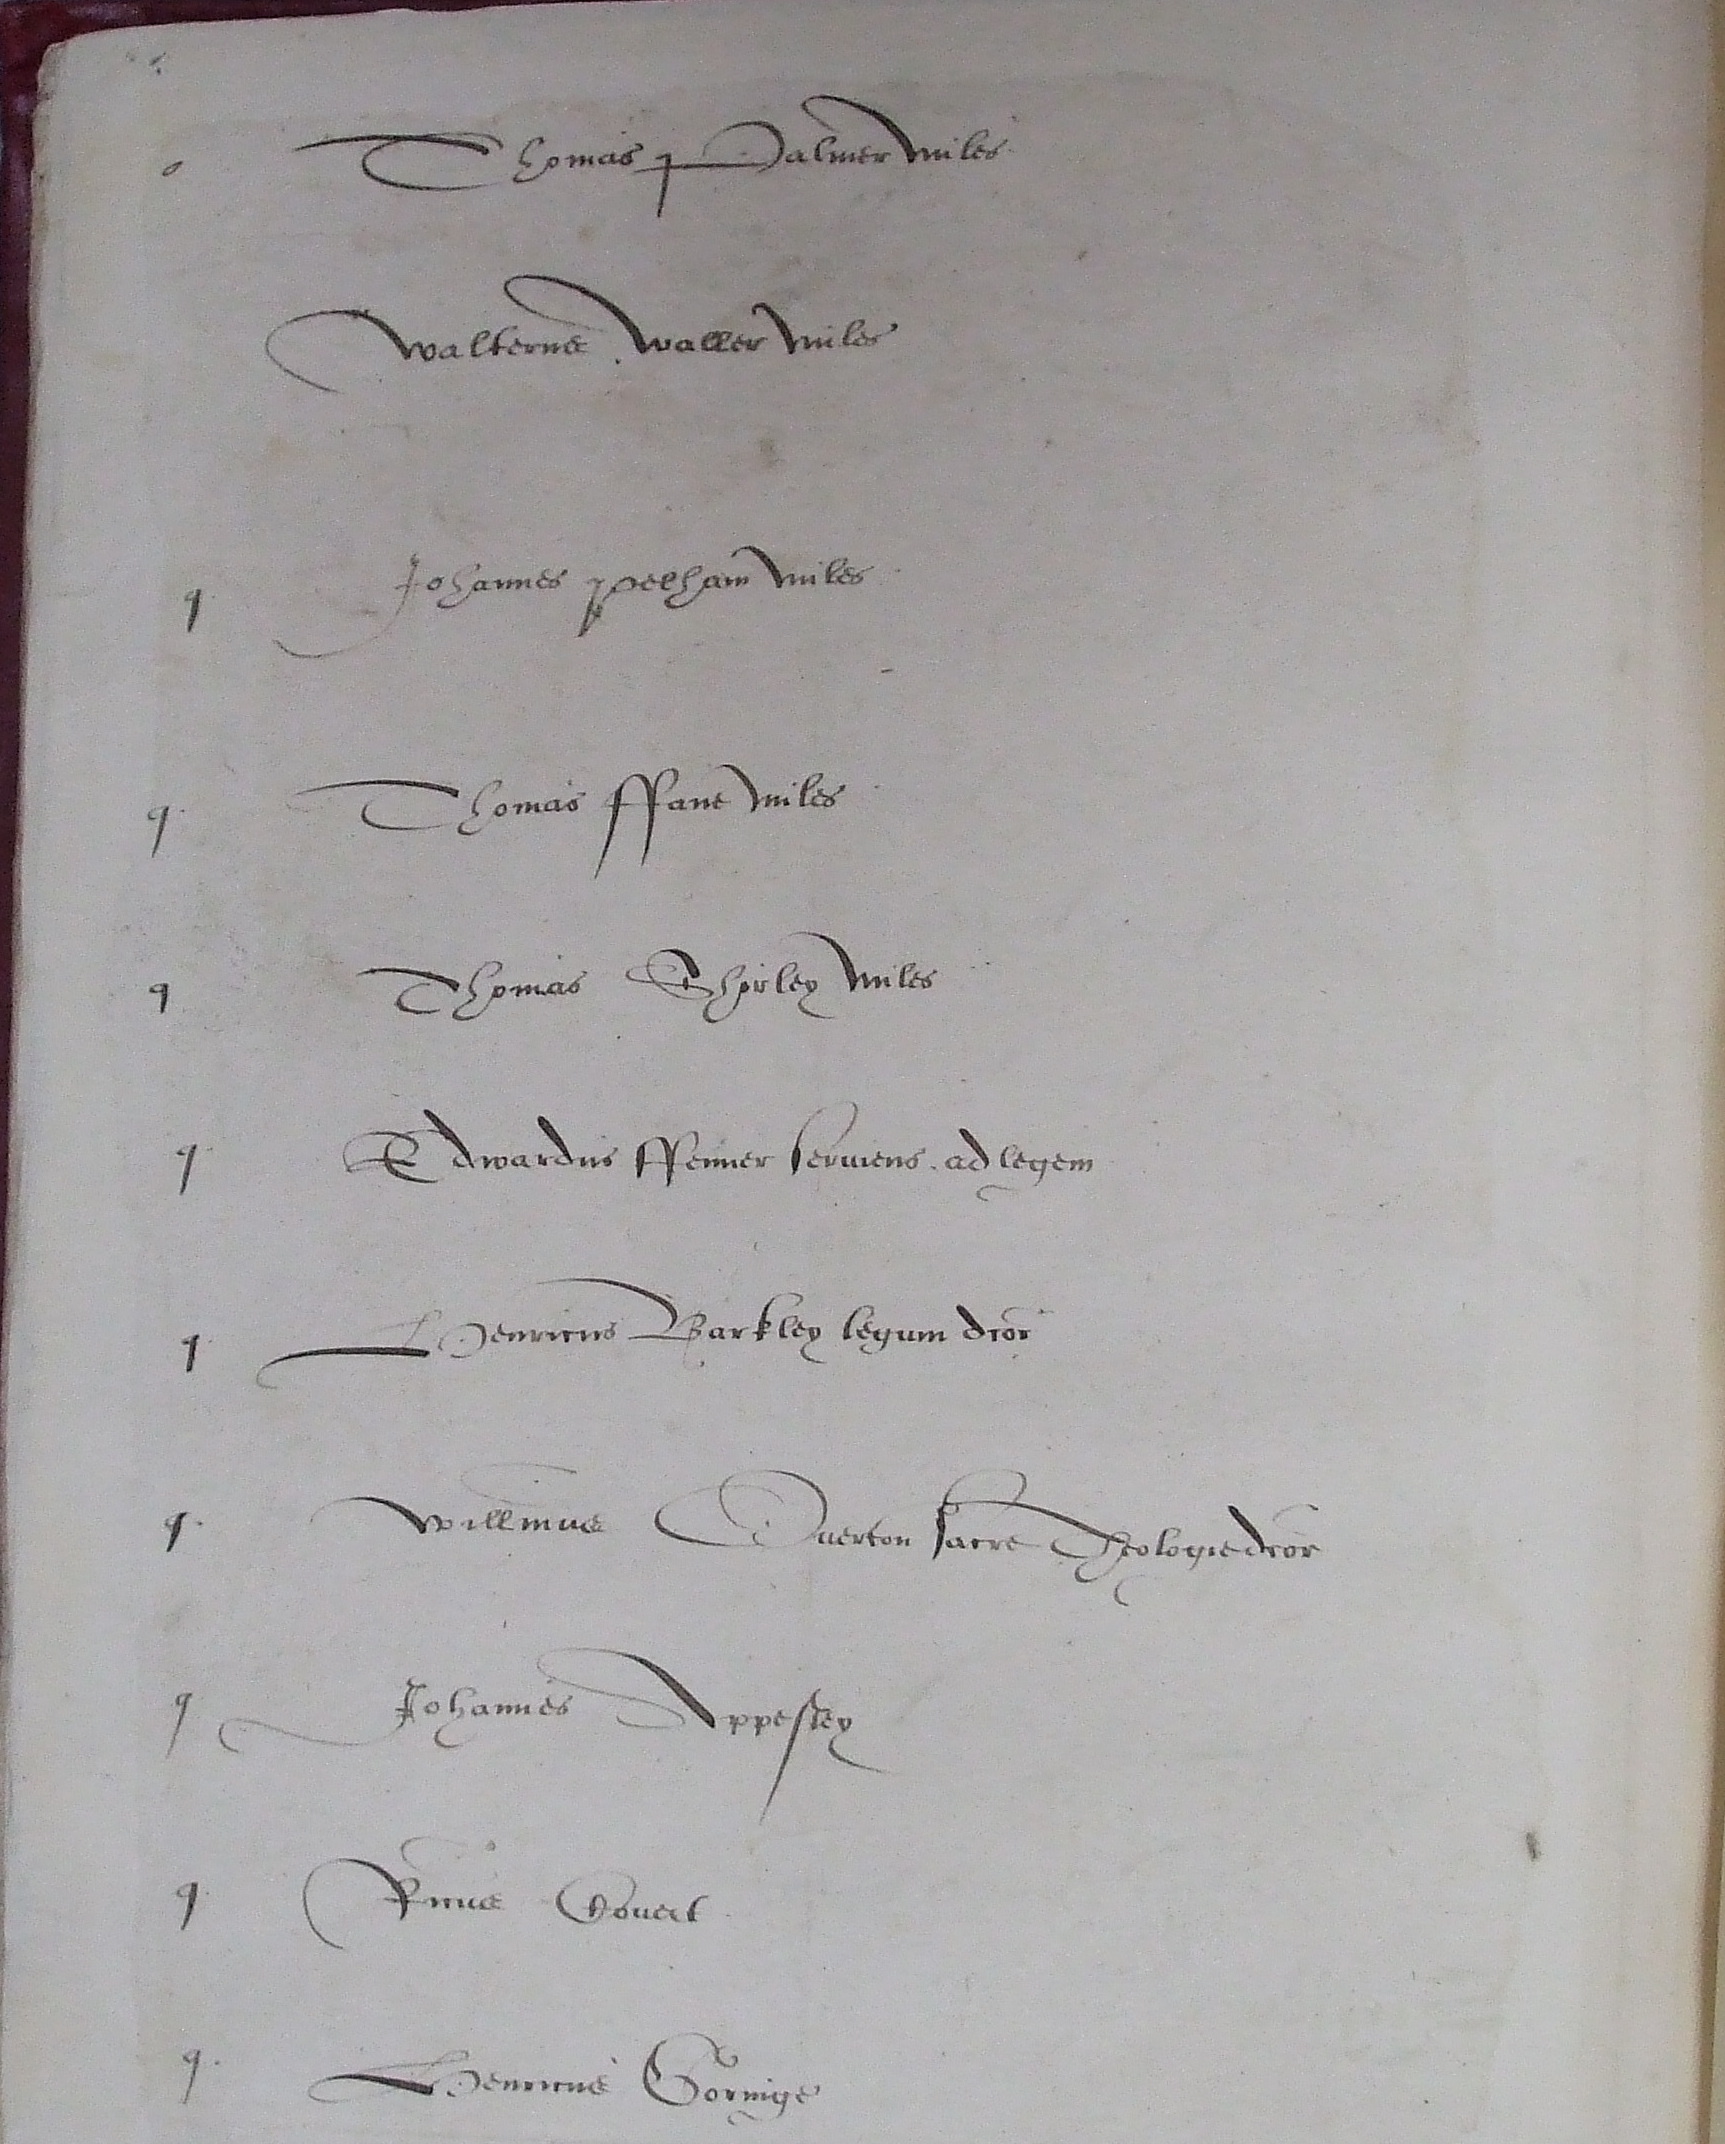 o Thomas Palmer miles
Walterus Waller miles
q Johannes pelham miles
q Thomas ffane miles
q Thomas Shirley miles
q Edwardus ffenner serviens ad legem
q Henricus Barkley legum dcor
q Willmus Overton sacre Theologie dcor
q Johannes Appesley
q Ricus Covert
q Henricus Goringe